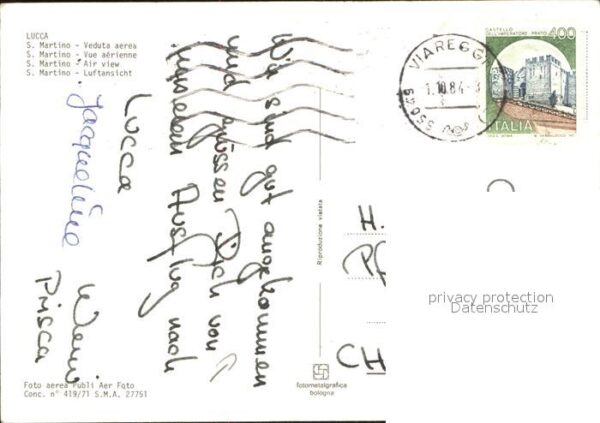 LUCCA
S. Martino - Veduta aerea
S. Martino - Vue aérienne
S. Martino - Air view
S. Martino - Luftansicht
Wir sind gut angekommen
und grüssen Dich von
unserem Ausflug nach
Lucca
Jacqueline
Prisca
Foto aerea Publi Aer Foto
Conc. n° 419/71 S.M.A. 27751
Riproduzione vietata
fotometalgrafica
bologna
CASTELLO
DELL'IMPERATORE PRATO
400
ITALIA
VIAREGGIO
1.10.84
55049
H.
CH
privacy protection
Datenschutz